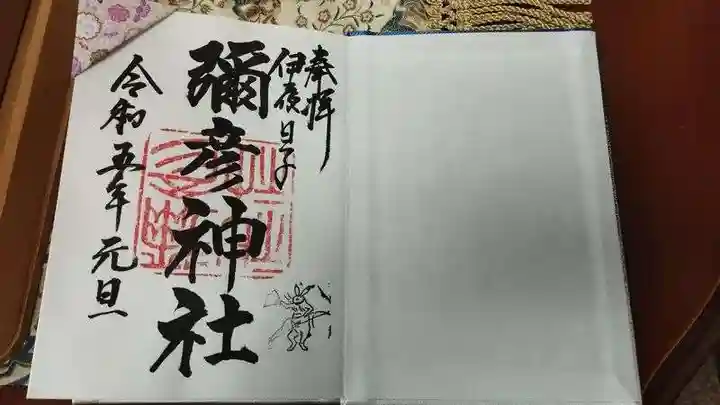 奉拝
伊夜日子
彌彦神社
令和五年元旦